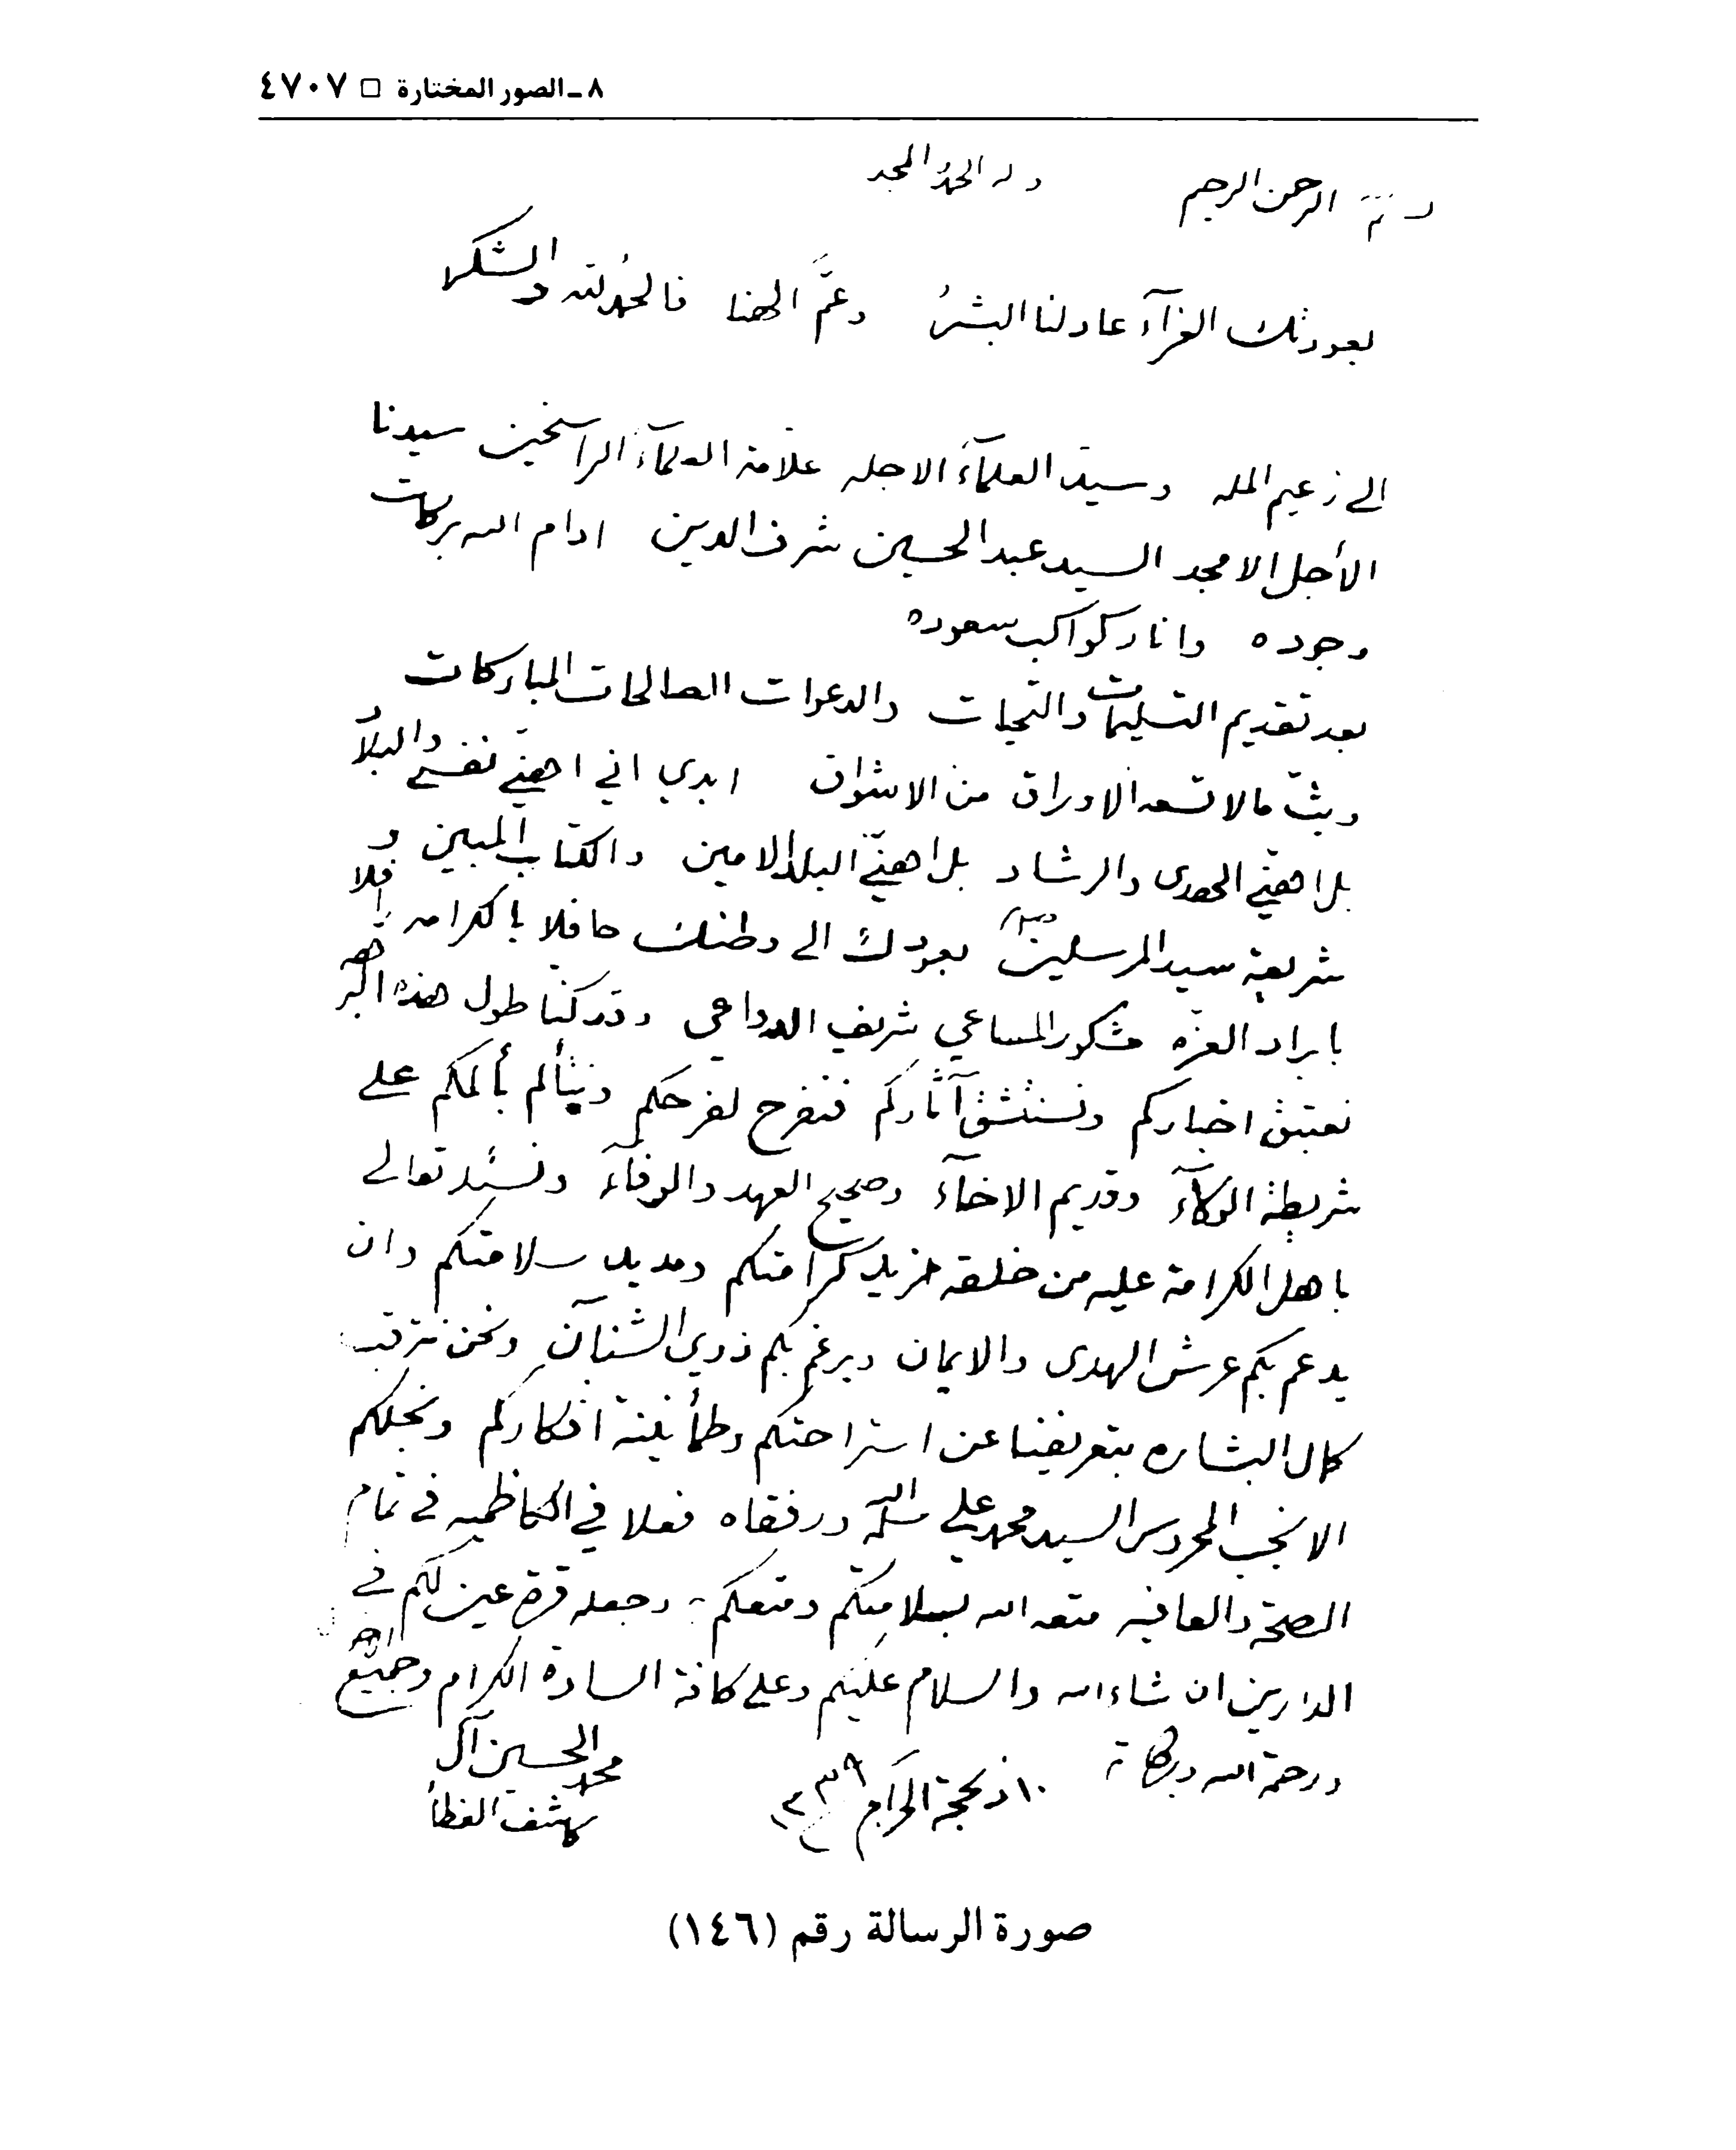 ٨ ـ الصور المختارة □ ٤٧٠٧
الرحمن الرحيم وله الحمد المجد
بعودتك الغرآء عاد لنا البشرُ وعمَّ الهنا فالحمدُ لله والشكر
الى زعيم المله وسيد العلمآء الاجله علامة العلمآء الراسخين سيدنا
الأجل الامجد السيد عبد الحسين شرف الدين ادام الله بركات
وجوده وانار كواكب سعوده
بعد تقديم التسليمات والتحيات والدعوات الصالحات المباركات
وبث ما لا تسعه الاوراق من الاشواق ابدي اني اهني نفسي والبلاد
بل اهني الهدى والرشاد بل اهني البلد الامين والكتاب المبين و
شريعة سيد المرسلين بعودك الى وطنك حافلا بالكرامه رافلا
بابراد العزه مشكور المساعي شريف الدواعي وقد كنا طول هذه البرهه
اخباركم ونستنشق آثاركم فنفرح لفرحكم ونتألم بألمكم على
شريطة الولآء وقديم الاخآء وصحيح العهد والوفآء ونسئله تعالى
باهل الكرامة عليه من خلقه مزيد كرامتكم ومديد سلامتكم وان
يدعم بكم عرش الهدى والايمان ويرغم بكم ذوي الشنآن ونحن نترقب
كمال البشاره بتعريفنا عن استراحتكم وطمأنينة افكاركم ونجلكم
الانجب المحروس السيد محمد علي سلمه الله ورفقاه فعلا في الكاظميه في تمام
الصحة والعافيه متعه الله بسلامتكم ومتعكم به وجعله قرة عين لكم في
الدارين ان شاء الله والسلام عليكم وعلى كافة السادة الكرام وجميع
ورحمة الله وبركاته ١٠ ذي حجة الحرام ١٣٣٩
محمد الحسين آل
كاشف الغطاء
صورة الرسالة رقم (١٤٦)